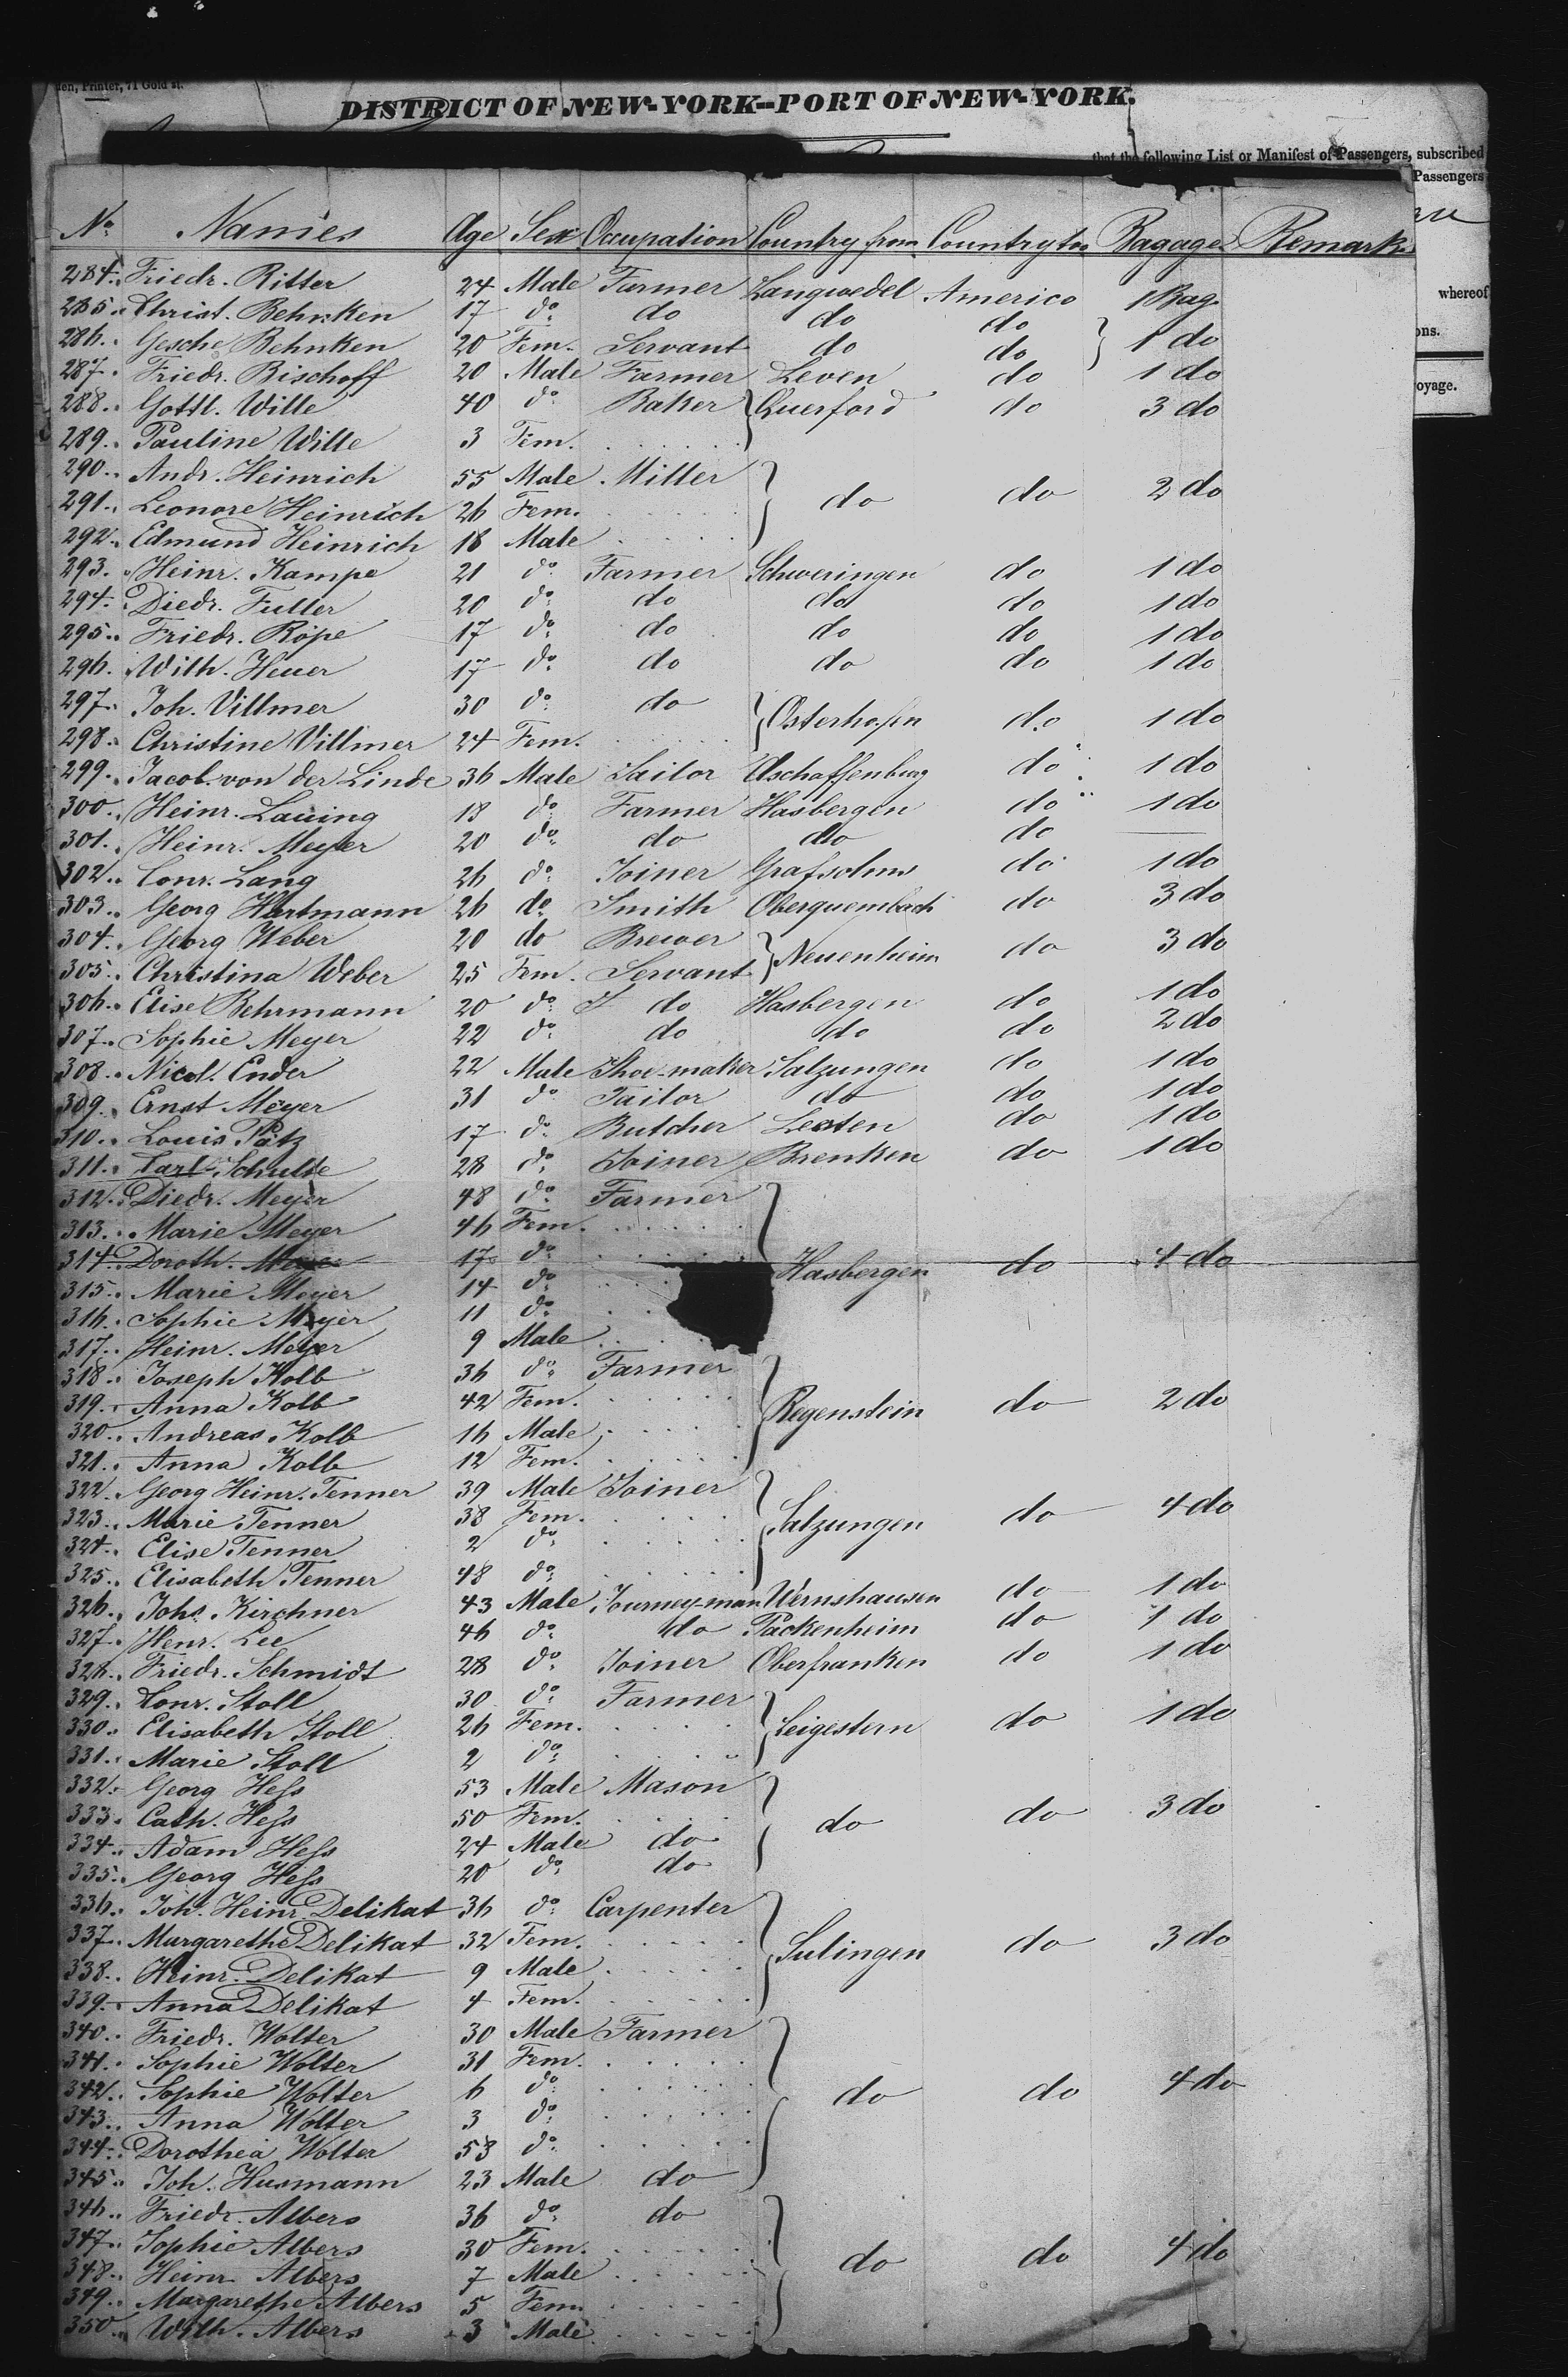 den, Printer, 71 Gold st.
DISTRICT OF NEW-YORK--PORT OF NEW-YORK.
that the following List or Manifest of Passengers, subscribed
Passengers
whereof
ons.
oyage.
No. Names Age Sex Occupation Country from Country to Bagage Remark
284. Friedr. Ritter 24 Male Farmer Langwedel America 1 Bag.
285. Christ. Behnken 17 do do do do
286. Gesche Behnken 20 Fem. Servant do do } 1 do
287. Friedr. Bischoff 20 Male Farmer Leven do 1 do
288. Gottl. Wille 40 do Baker } Querford do 3 do
289. Pauline Wille 3 Fem. . . . . . .
290. Andr. Heinrich 55 Male Miller
291. Leonore Heinrich 26 Fem. . . . . . } do do 2 do
292. Edmund Heinrich 18 Male . . . . .
293. Heinr. Kampe 21 do Farmer Schweringen do 1 do
294. Diedr. Fuller 20 do do do do 1 do
295. Friedr. Röpe 17 do do do do 1 do
296. Wilh. Heuer 17 do do do do 1 do
297. Joh. Villmer 30 do do } Osterhofen do 1 do
298. Christine Villmer 24 Fem. . . . . .
299. Jacob von der Linde 36 Male Sailor Aschaffenburg do 1 do
300. Heinr. Lauing 18 do Farmer Hasbergen do 1 do
301. Heinr. Meyer 20 do do do do —
302. Conr. Lang 26 do Joiner Grafsolms do 1 do
303. Georg Hartmann 26 do Smith Oberquembach do 3 do
304. Georg Weber 20 do Brewer } Neuenheim do 3 do
305. Christina Weber 25 Fem. Servant
306. Elise Behrmann 20 do do Hasbergen do 1 do
307. Sophie Meyer 22 do do do do 2 do
308. Nicol. Ender 22 Male Shoe-maker Salzungen do 1 do
309. Ernst Meyer 31 do Tailor do do 1 do
310. Louis Pätz 17 do Butcher Lesten do 1 do
311. Carl Schulte 28 do Joiner Brenken do 1 do
312. Diedr. Meyer 48 do Farmer
313. Marie Meyer 46 Fem. . . . . . .
314. Doroth. Meyer 17 do . . . . . } Hasbergen do 4 do
315. Marie Meyer 14 do . . .
316. Sophie Meyer 11 do . .
317. Heinr. Meyer 9 Male . . .
318. Joseph Kolb 36 do Farmer
319. Anna Kolb 42 Fem. . . . . . } Regenstein do 2 do
320. Andreas Kolb 16 Male . . . . .
321. Anna Kolb 12 Fem. . . . . .
322. Georg Heinr. Tenner 39 Male Joiner
323. Marie Tenner 38 Fem. . . . . . } Salzungen do 4 do
324. Elise Tenner 2 do . . . . .
325. Elisabeth Tenner 48 do . . . . .
326. Johs. Kirchner 43 Male Journey-man Wernshausen do 1 do
327. Henr. Lee 46 do do Packenheim do 1 do
328. Friedr. Schmidt 28 do Joiner Oberfranken do 1 do
329. Conr. Stoll 30 do Farmer
330. Elisabeth Stoll 26 Fem. . . . . } Leigestern do 1 do
331. Marie Stoll 2 do . . . .
332. Georg Heſs 53 Male Mason
333. Cath. Heſs 50 Fem. . . . . } do do 3 do
334. Adam Heſs 24 Male do
335. Georg Heſs 20 do do
336. Joh. Heinr. Delikat 36 do Carpenter
337. Margarethe Delikat 32 Fem. . . . . . } Sulingen do 3 do
338. Heinr. Delikat 9 Male . . . . .
339. Anna Delikat 4 Fem. . . . . .
340. Friedr. Wolter 30 Male Farmer
341. Sophie Wolter 31 Fem. . . . . .
342. Sophie Wolter 6 do . . . . . } do do 4 do
343. Anna Wolter 3 do . . . . .
344. Dorothea Wolter 53 do . . . . .
345. Joh. Husmann 23 Male do
346. Friedr. Albers 36 do do
347. Sophie Albers 30 Fem. . . . . .
348. Heinr. Albers 7 Male . . . . . } do do 4 do
349. Margarethe Albers 5 Fem. . . . . .
350. Wilh. Albers 3 Male . . . . .